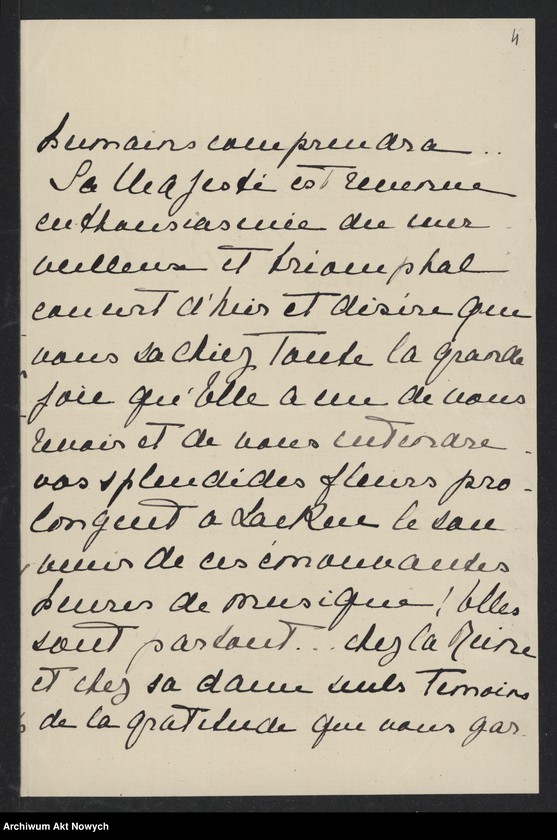 4
humains comprendra ..
Sa Majesté est encore
enthousiasmée du mer
veilleux et triomphal
concert d'hier et désire que
vous sachiez toute la grande
joie qu'Elle a eu de vous
revoir et de vous entendre.
vos splendides fleurs pro-
longent a Laeken le sou
venir de ces émouvantes
heures de musique! Elles
sont partout... chez la Reine
et chez sa dame seuls temoins
de la gratitude que vous gar
Archiwum Akt Nowych